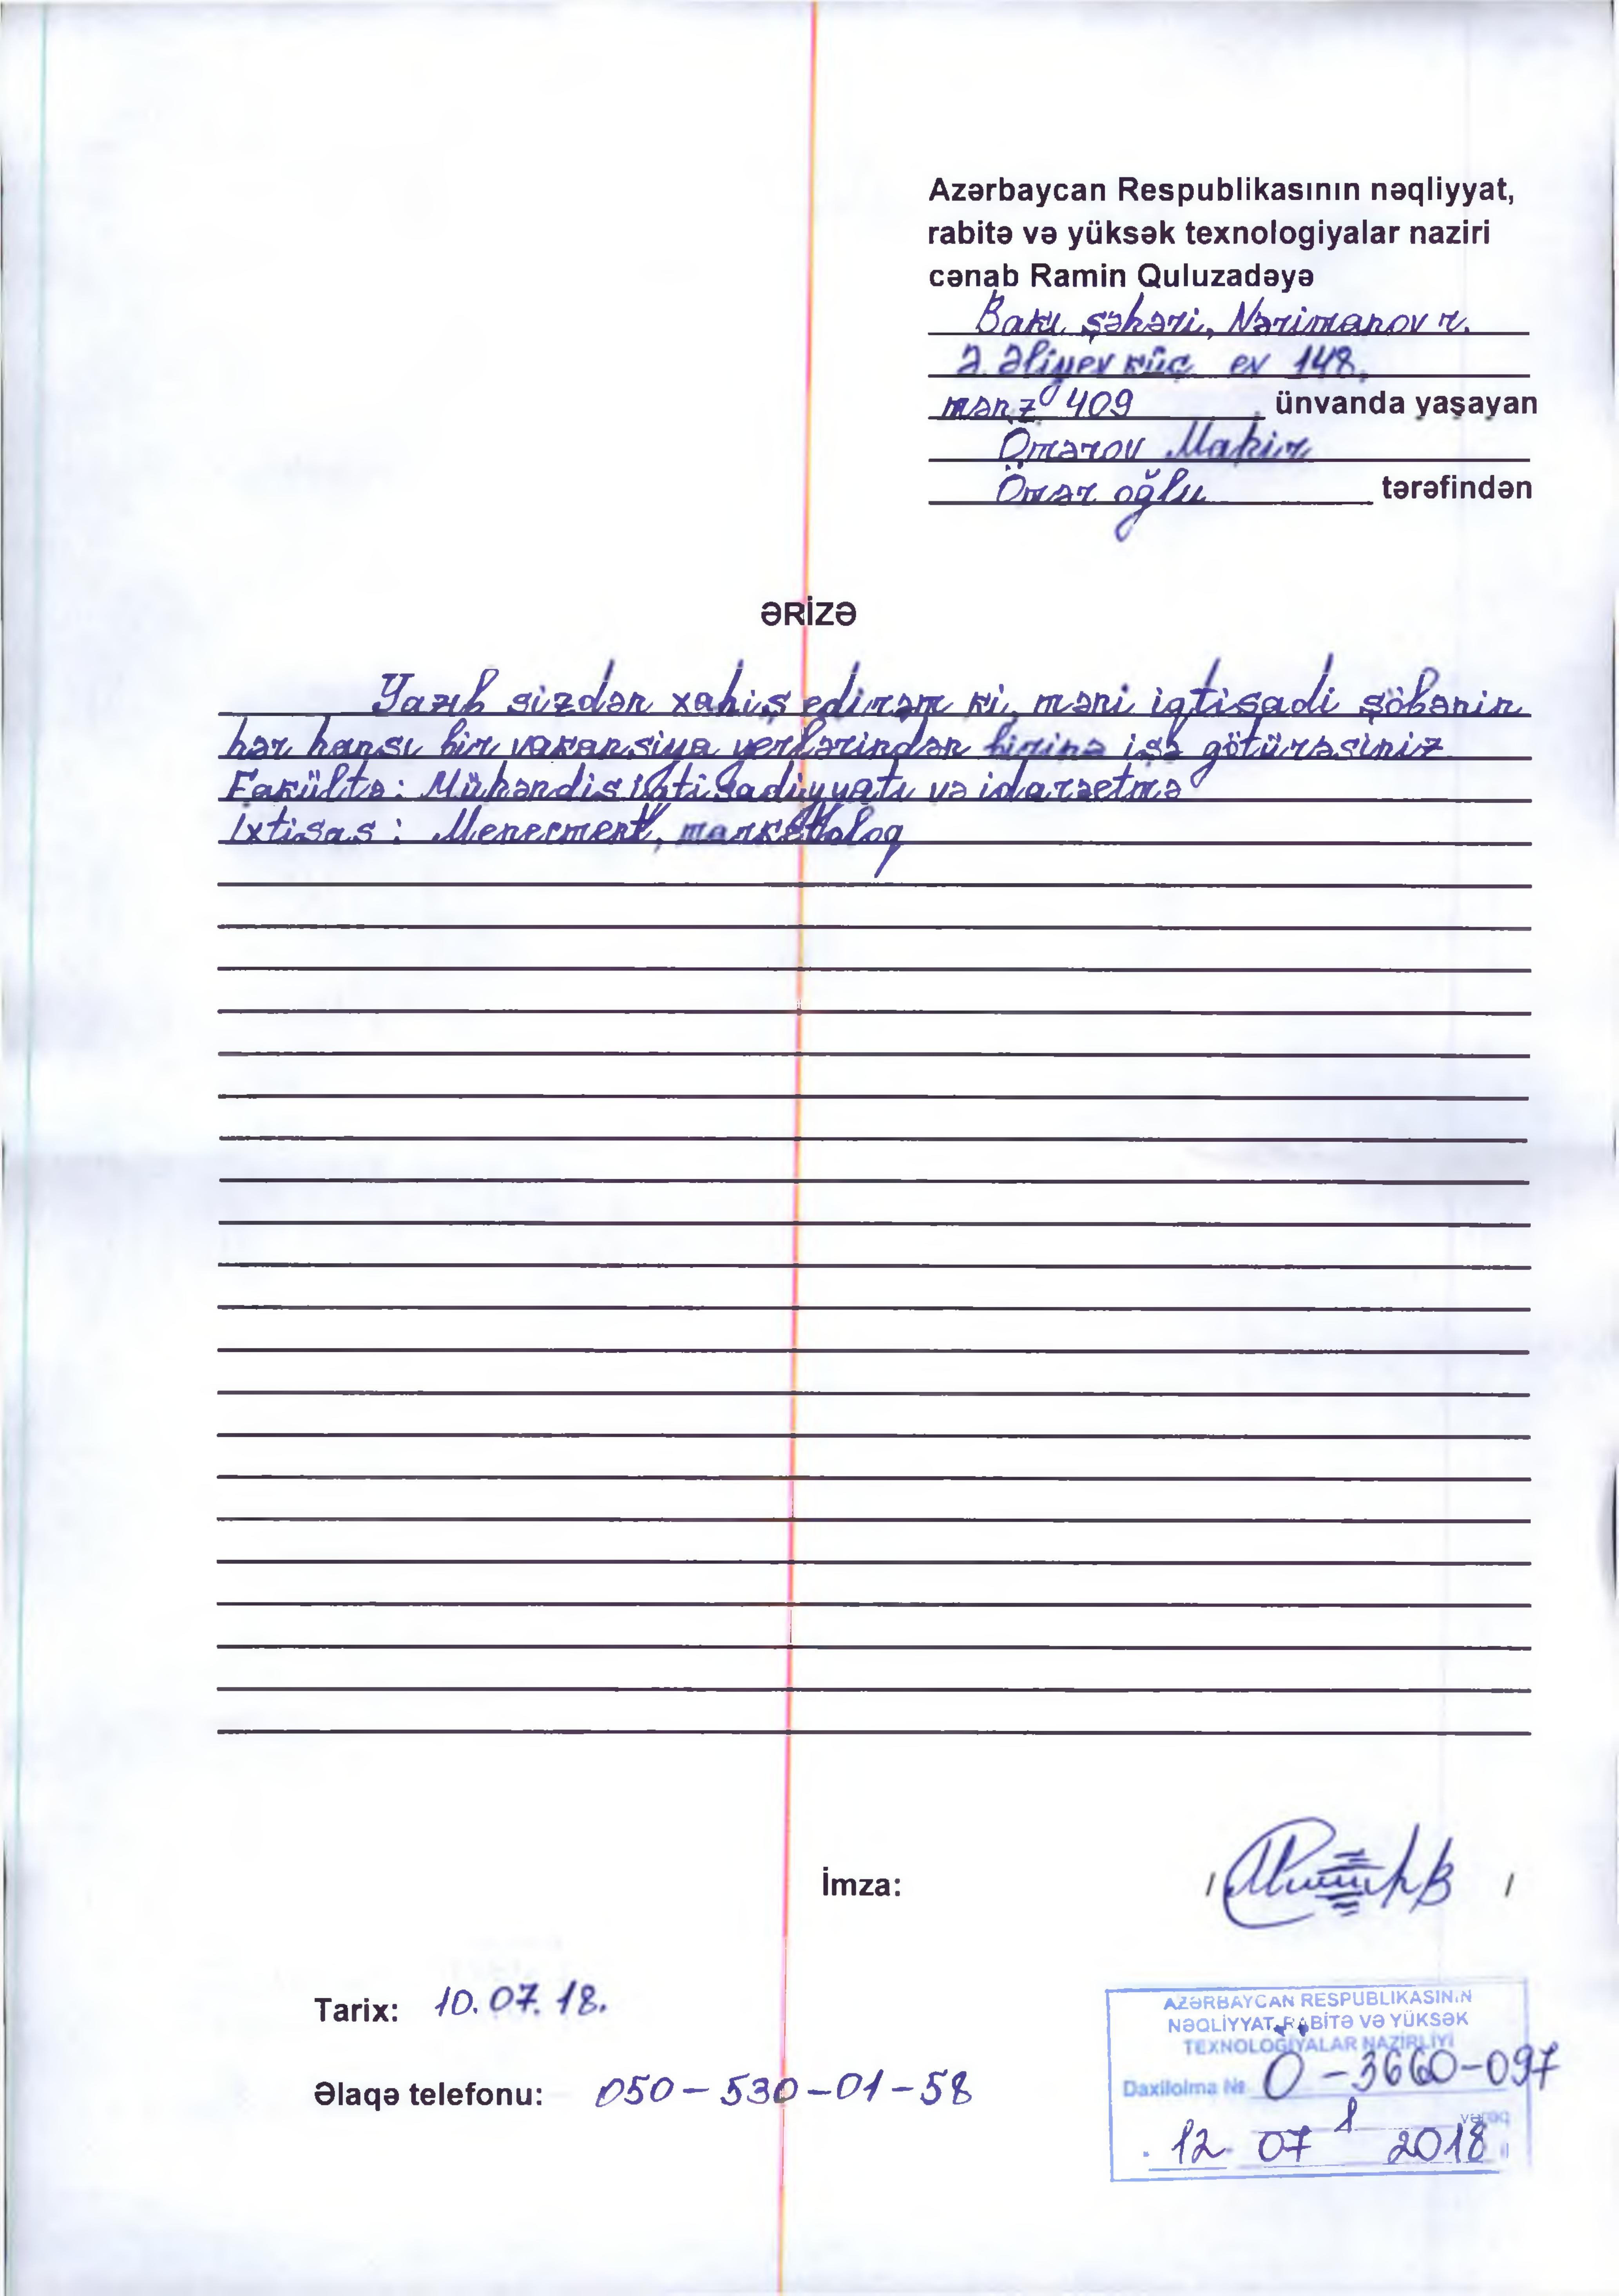 Azərbaycan Respublikasının nəqliyyat,
rabitə və yüksək texnologiyalar naziri
cənab Ramin Quluzadəyə
Bakı şəhəri, Nərimanov r.
Ə. Əliyev küç ev 148,
mənz 409 ünvanda yaşayan
Ömərov Mahir
Ömər oğlu tərəfindən
ƏRİZƏ
Yazıb sizdən xahiş edirəm ki, məni iqtisadi şöbənin
hər hansı bir vakansiya yerlərindən birinə işə götürəsiniz
Fakültə: Mühəndis iqtisadiyyatı və idarəetmə
Ixtisas: Menecment, marketoloq
İmza:
Tarix: 10.07.18.
Əlaqə telefonu: 050-530-01-58
AZƏRBAYCAN RESPUBLIKASININ
NƏQLİYYAT, RABİTƏ VƏ YÜKSƏK
TEXNOLOGİYALAR NAZİRLİYİ
Daxilolma № 0-3660-097
1 vərəq
12 07 2018 il